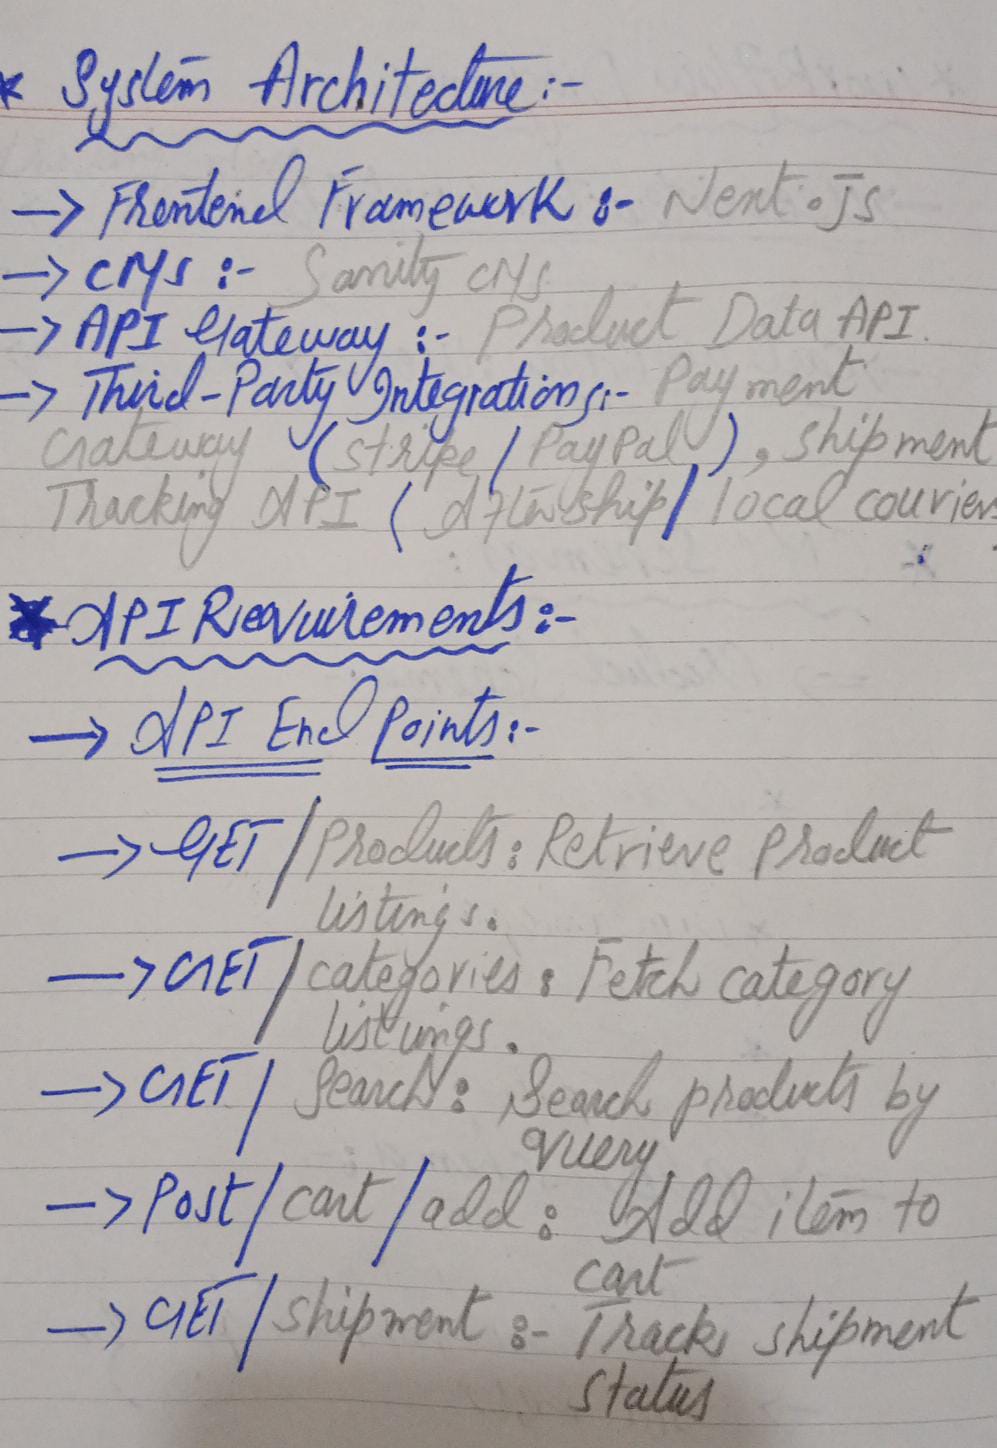 * System Architecture:-
→ Frontend Framework :- Next.js
→ CMS :- Sanity CMS
→ API Gateway :- Product Data API.
→ Third-Party Integrations:- Payment
Gateway (Stripe / PayPal), shipment
Tracking API ( Aftership/ local couriers
* API Requirements:-
→ API End Points:-
→ GET / Products: Retrieve product
listings.
→ GET / categories : Fetch category
listings.
→ GET / Search : Search products by
query
→ Post / cart / add : Add item to
cart
→ GET / shipment :- Track shipment
status